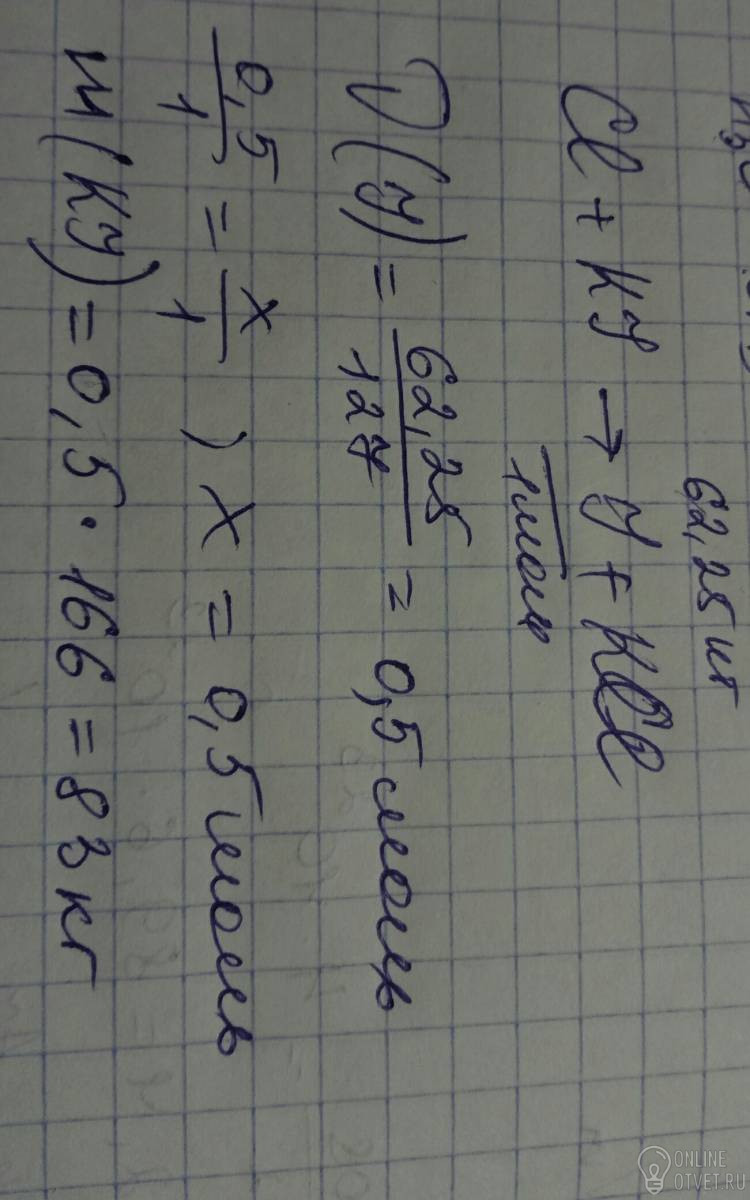 62,25 кг
Cl + KJ → J + KCl
1 моль
ν(J) = 62,25 / 127 = 0,5 моль
0,5 / 1 = x / 1 ) x = 0,5 моль
m(KJ) = 0,5 · 166 = 83 кг
ONLINE
OTVET.RU